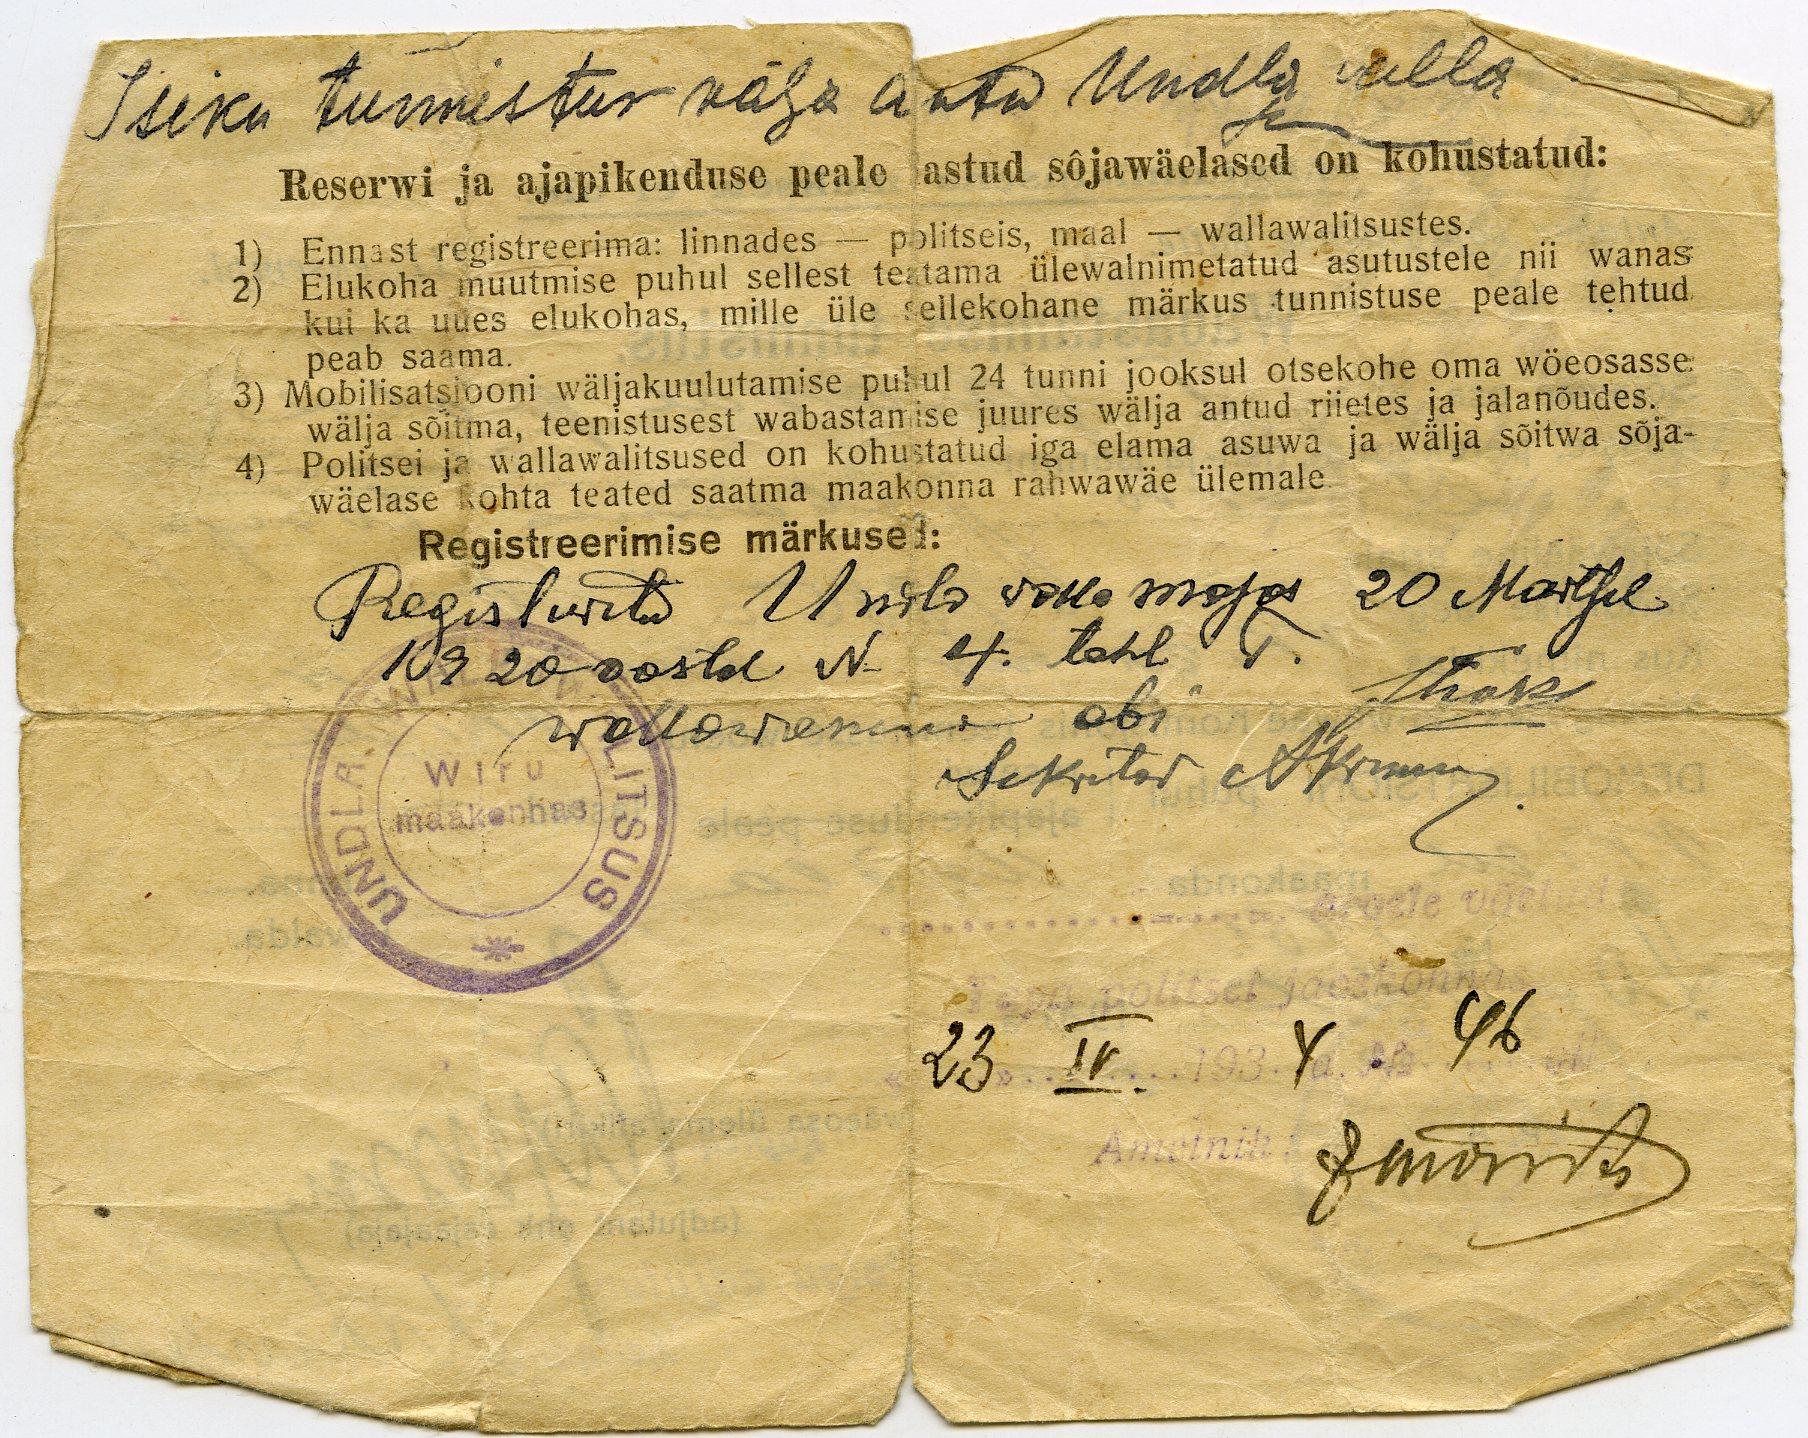 Isiku tunnistus välja antud Undla valla
Reserwi ja ajapikenduse peale lastud sõjawäelased on kohustatud:
1) Ennast registreerima: linnades — politseis, maal — wallawalitsustes.
2) Elukoha muutmise puhul sellest teatama ülewalnimetatud asutustele nii wanas
kui ka uues elukohas, mille üle sellekohane märkus tunnistuse peale tehtud
peab saama.
3) Mobilisatsiooni wäljakuulutamise puhul 24 tunni jooksul otsekohe oma wöeosasse
wälja sõitma, teenistusest wabastamise juures wälja antud riietes ja jalanõudes.
4) Politsei ja wallawalitsused on kohustatud iga elama asuwa ja wälja sõitwa sõja-
wäelase kohta teated saatma maakonna rahwawäe ülemale
Registreerimise märkused:
Undla valla majas 20 Märtsil
1920 aastal № 4. tähl T.
wallawanema abi
Sekretär
UNDLA WALLAWALITSUS
Wiru
maakonnas
arvele võetud
Tapa politsei jaoskonnas
23 » IV. 193 4 a. № 46
Ametnik: